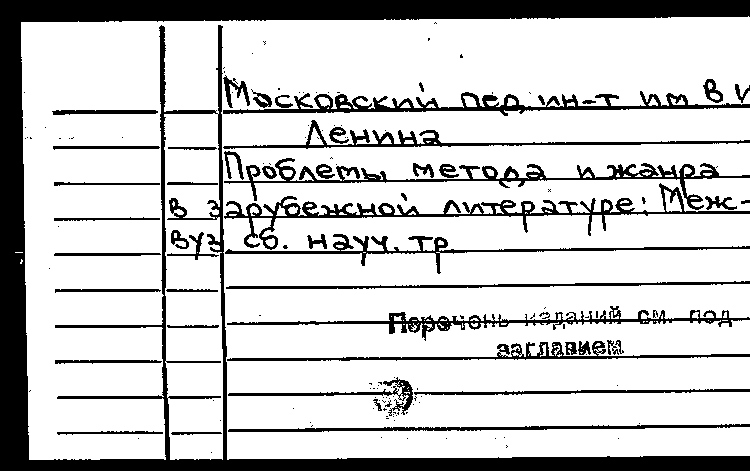 Московский пед. ин-т им В И
Ленина
Проблемы метода и жанра
в зарубежной литературе: Меж-
вуз. сб. науч. тр
Перечень изданий см. под
заглавием